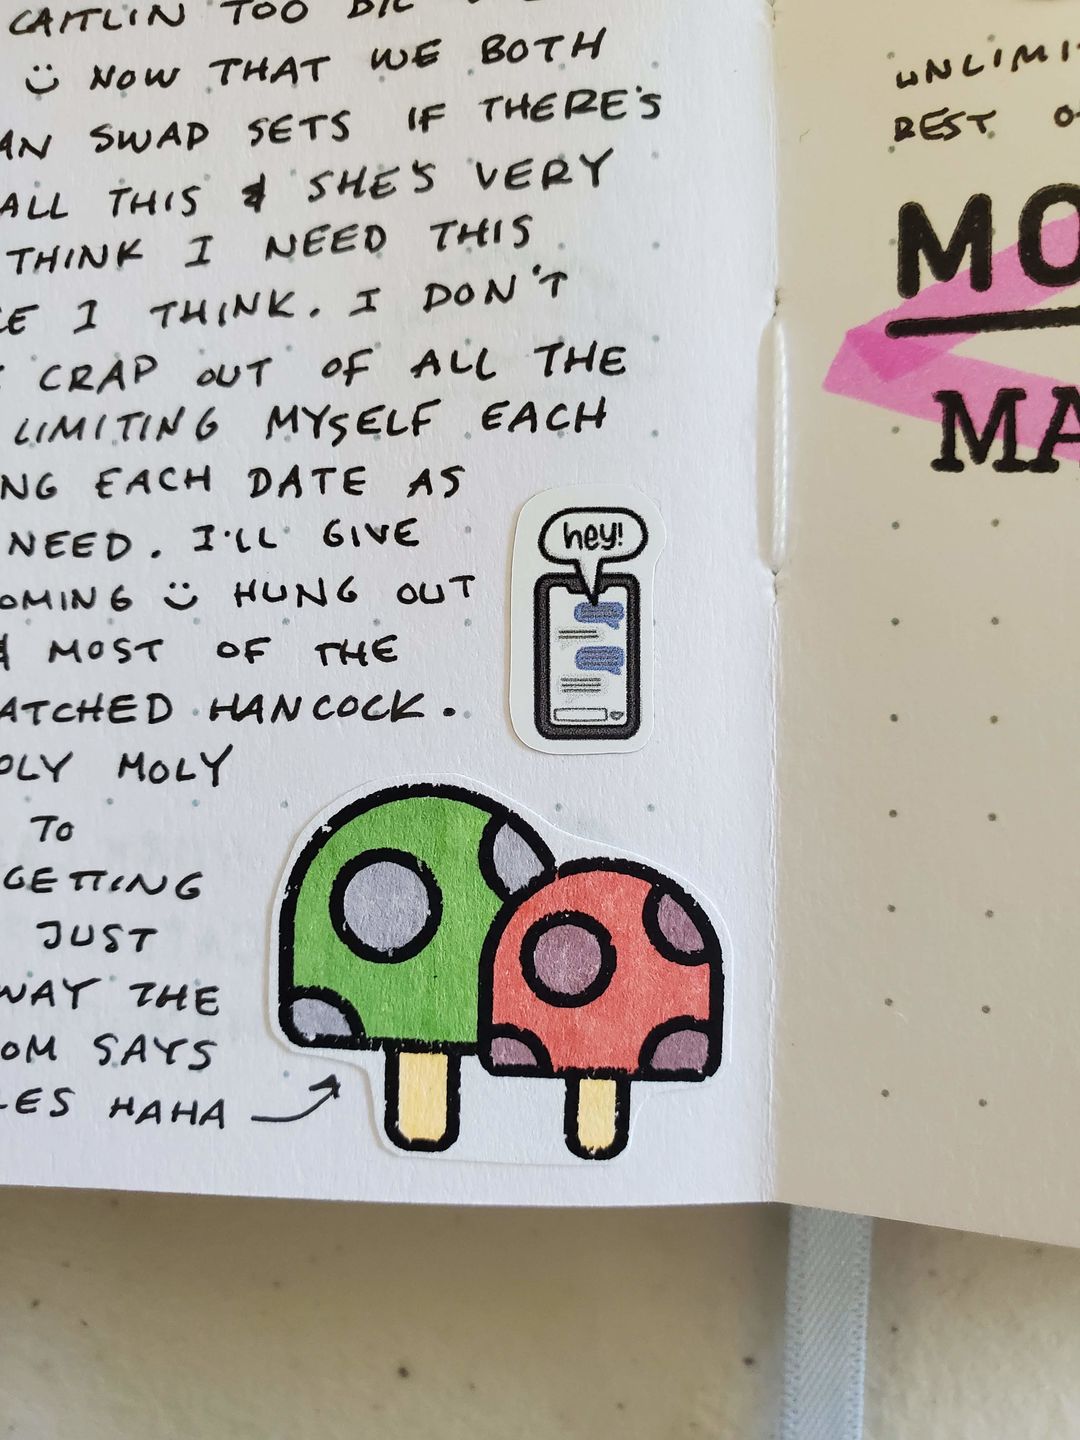 CAITLIN TOO
☺ NOW THAT WE BOTH
AN SWAP SETS IF THERE'S
ALL THIS & SHE'S VERY
THINK I NEED THIS
I THINK. I DON'T
CRAP OUT OF ALL THE
LIMITING MYSELF EACH
NG EACH DATE AS
NEED. I'LL GIVE
OMING ☺ HUNG OUT
& MOST OF THE
ATCHED HANCOCK.
OLY MOLY
TO
GETTING
JUST
WAY THE
OM SAYS
LES HAHA
hey!
UNLIMI
REST O
MO
MA